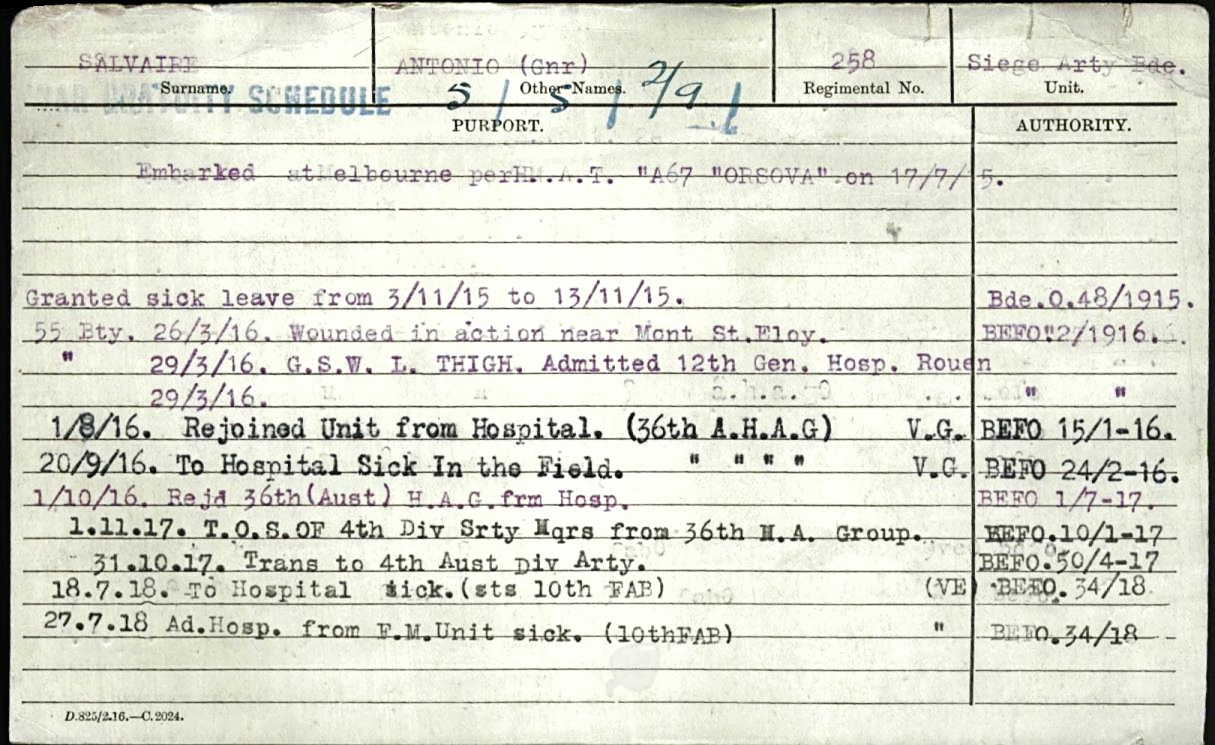 SALVAIRE ANTONIO (Gnr) 258 Siege Arty Bde.
Surname. Other Names. Regimental No. Unit.
WAR GRATUITY SCHEDULE 5 / 5 / 2/9
PURPORT. AUTHORITY.
Embarked at Melbourne per H.M.A.T. "A67 "ORSOVA" on 17/7/ 5.
Granted sick leave from 3/11/15 to 13/11/15. Bde.O.48/1915.
55 Bty. 26/3/16. Wounded in action near Mont St.Eloy. BEFO 2/1916.
" 29/3/16. G.S.W. L. THIGH. Admitted 12th Gen. Hosp. Rouen
29/3/16. " "
1/8/16. Rejoined Unit from Hospital. (36th A.H.A.G) V.G. BEFO 15/1-16.
20/9/16. To Hospital Sick In the Field. " " " " V.G. BEFO 24/2-16.
1/10/16. Rejd 36th(Aust) H.A.G.frm Hosp. BEFO 1/7-17.
1.11.17. T.O.S.OF 4th Div Srty Hqrs from 36th H.A. Group. BEFO.10/1-17
31.10.17. Trans to 4th Aust Div Arty. BEFO.50/4-17
18.7.18. To Hospital sick.(sts 10th FAB) (VE) BEFO. 34/18
27.7.18 Ad.Hosp. from F.M.Unit sick. (10thFAB) " BEFO.34/18
D.825/2.16.—C.2024.